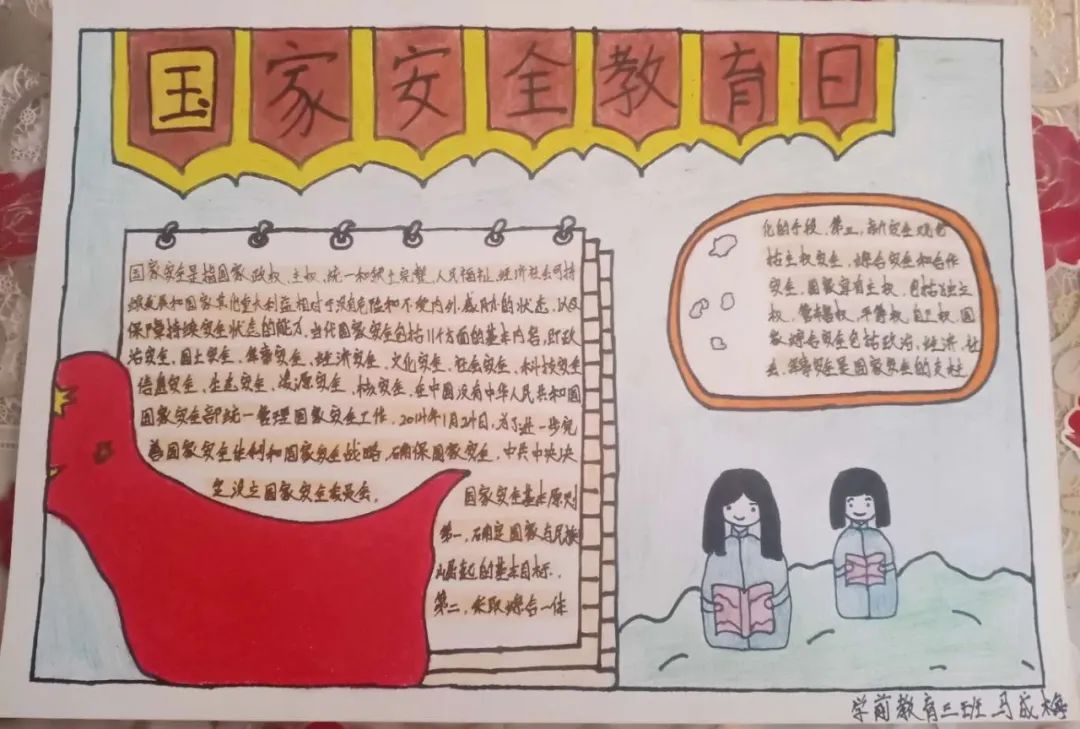 国家安全教育日
国家安全是指国家政权、主权、统一和领土完整、人民福祉、经济社会可持
续发展和国家其他重大利益相对处于没有危险和不受内外威胁的状态，以及
保障持续安全状态的能力，当代国家安全包括11个方面的基本内容，即政
治安全、国土安全、军事安全、经济安全、文化安全、社会安全、科技安全
信息安全、生态安全、资源安全、核安全，在中国没有中华人民共和国
国家安全部统一管理国家安全工作，2014年1月24日，为了进一步完
善国家安全体制和国家安全战略，确保国家安全，中共中央决
定设立国家安全委员会。
国家安全基本原则
第一，确定国家与民族
崛起的基本目标。
第二，采取综合一体
化的手段，第三，新安全观包
括主权安全、综合安全和合作
安全，国家享有主权，包括独立
权、管辖权、平等权、自卫权，国
家综合安全包括政治、经济、社
会，军事安全是国家安全的支柱
学前教育三班 马成梅